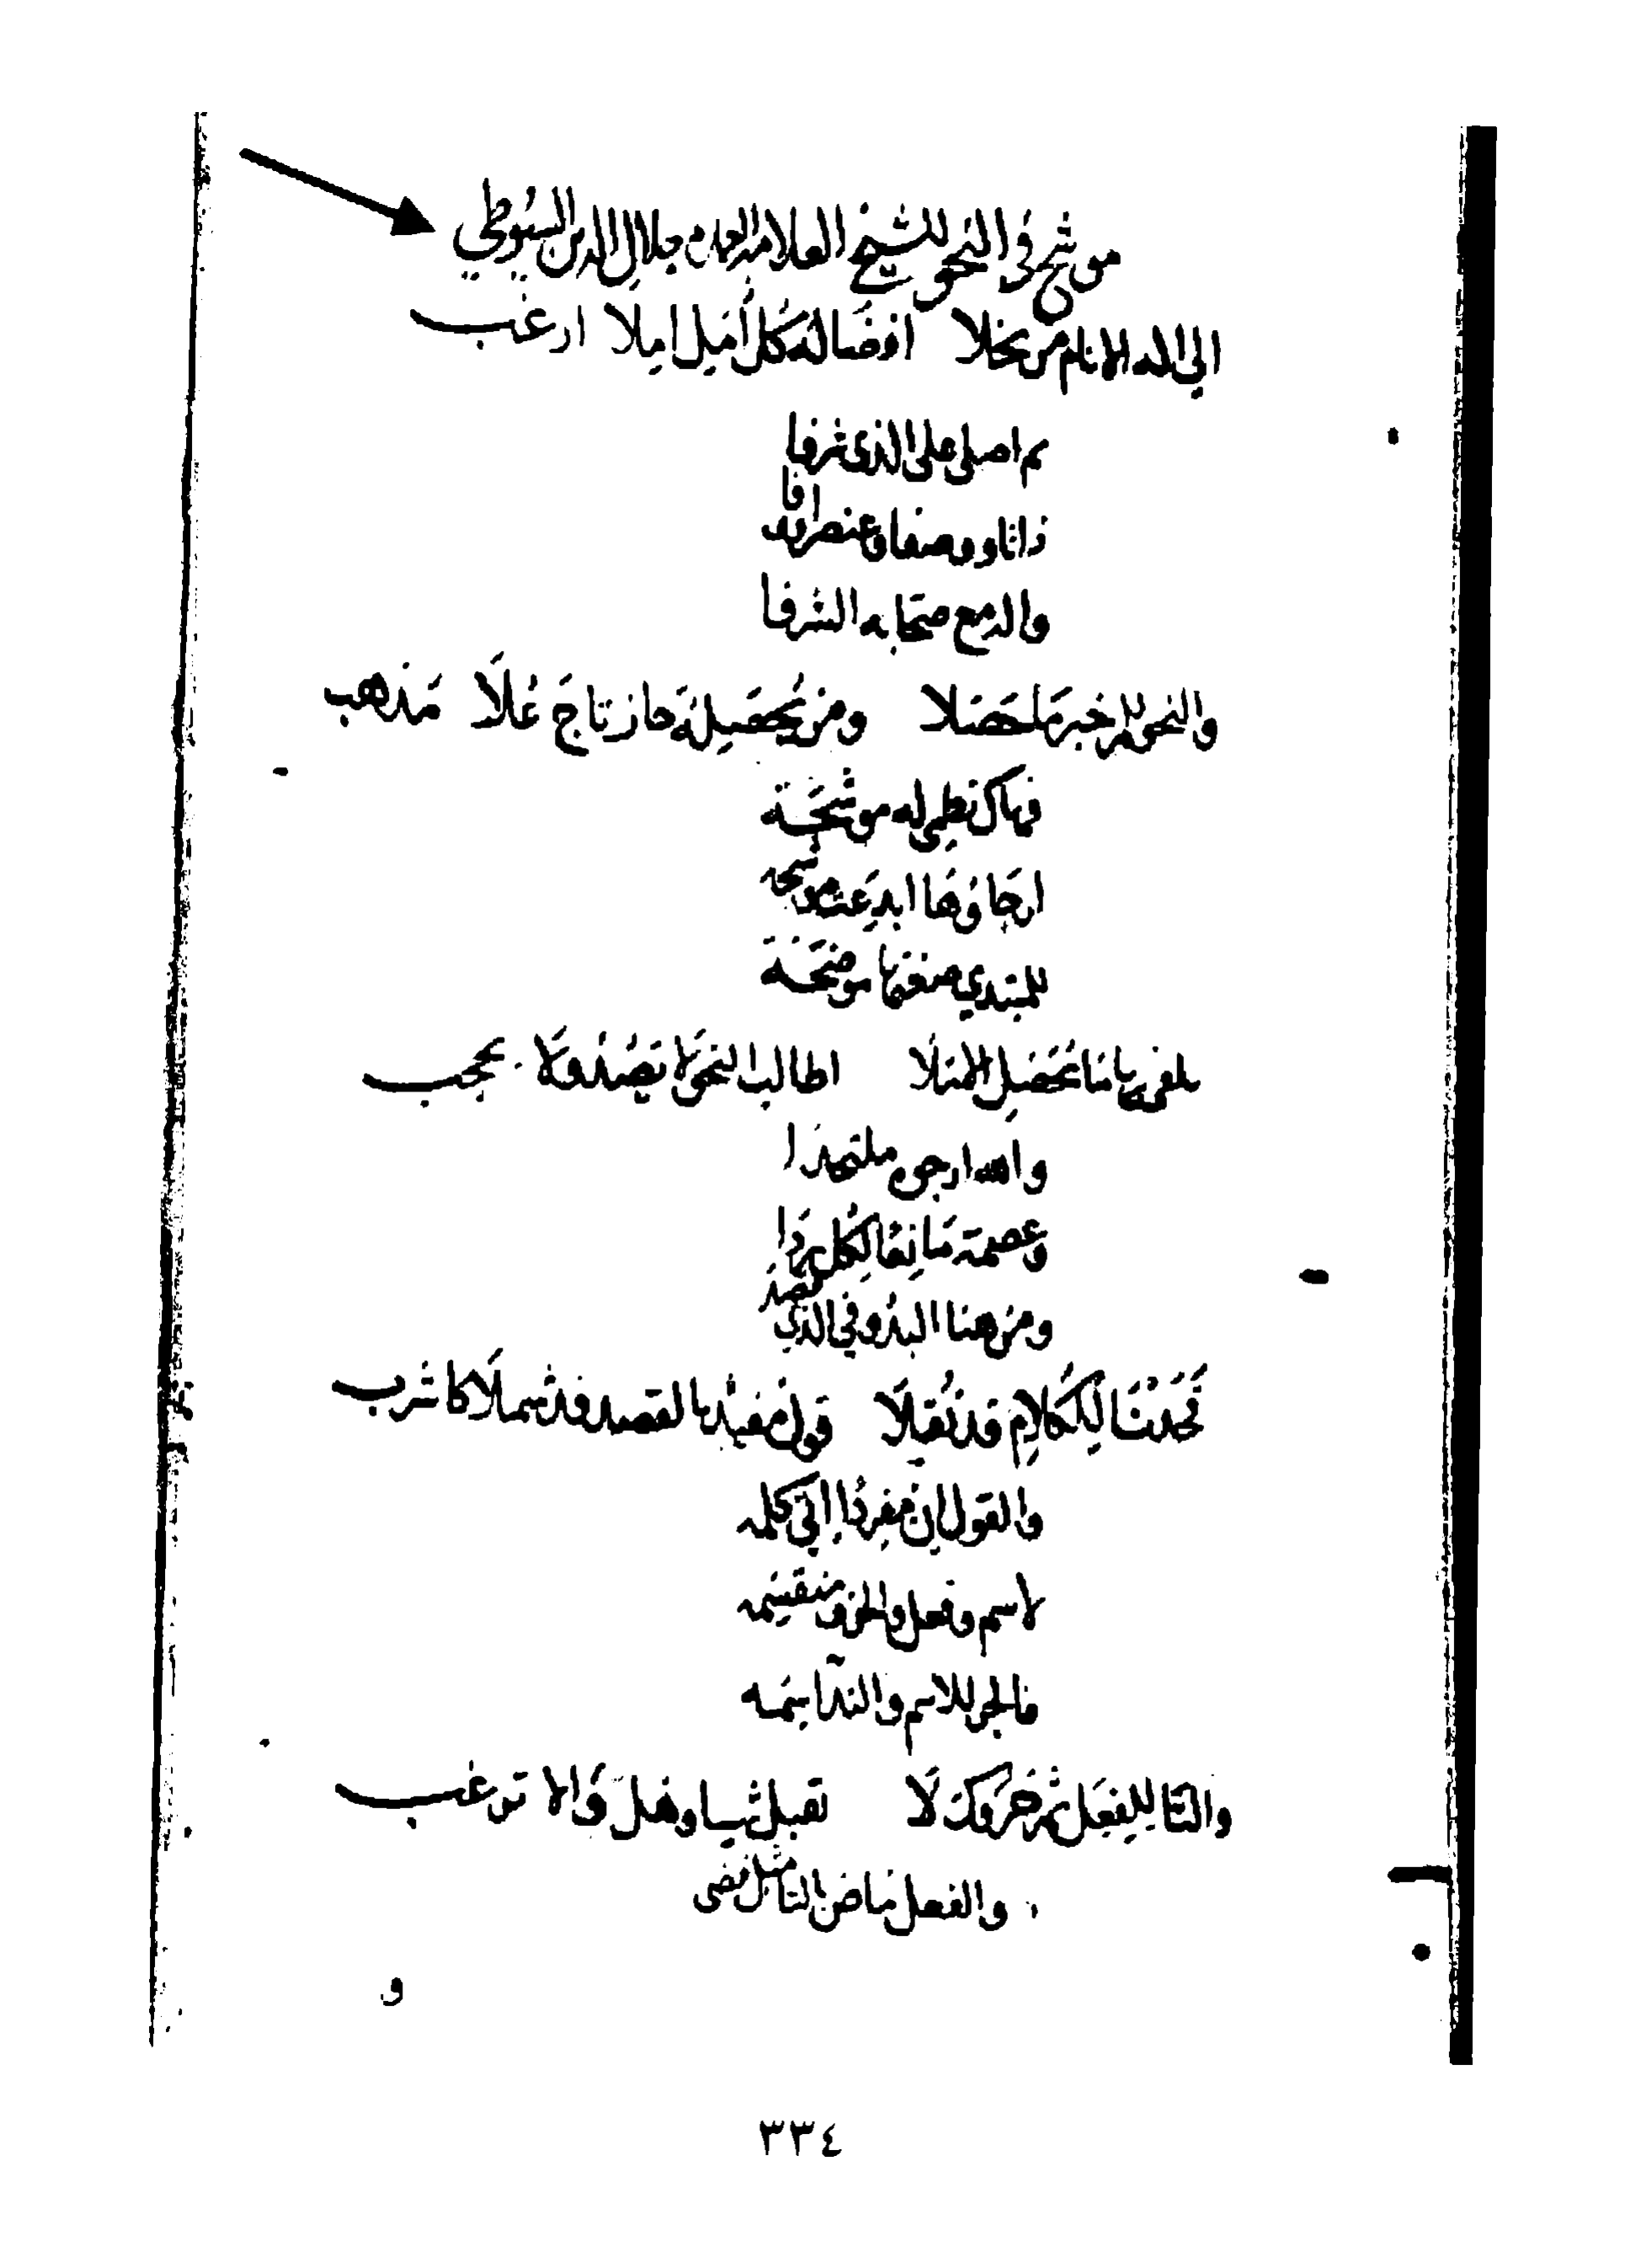 موشح في النحو للشيخ العلامة الهمام جلال الدين السيوطي
الي اله الانام من نخلا افضاله كل أمل املا ارغب
ثم اصلي على الذي شرفا
ذاتا ووصفا وعنصرا
واله مع صحابه الشرفا
والنحو خير ما حصلا ومن يحصيله حاز تاج عُلَا مذهب
فهاك نظمي له موشحة
ارجاؤها ابدعت
للمبتدي صغتها موضحة
اطالب النحو لا تصد ولا يحجب
والله ارجو
وعصمة مانعا لكل
ومن هنا البدؤ في الذي قصد
تحدثنا للكلام قد نقلا قول مفيد بالقصد قد شملا كاشرب
والقول ان مفردا اتى كلمه
لاسم وفعل والحرف منقسمه
فالجر للاسم والندا سمه
والتا للفعل ثم حرفك لا تقبل شيا وهل والا ترغب
والفعل ماض بالتا مثل مضى
و
٣٣٤